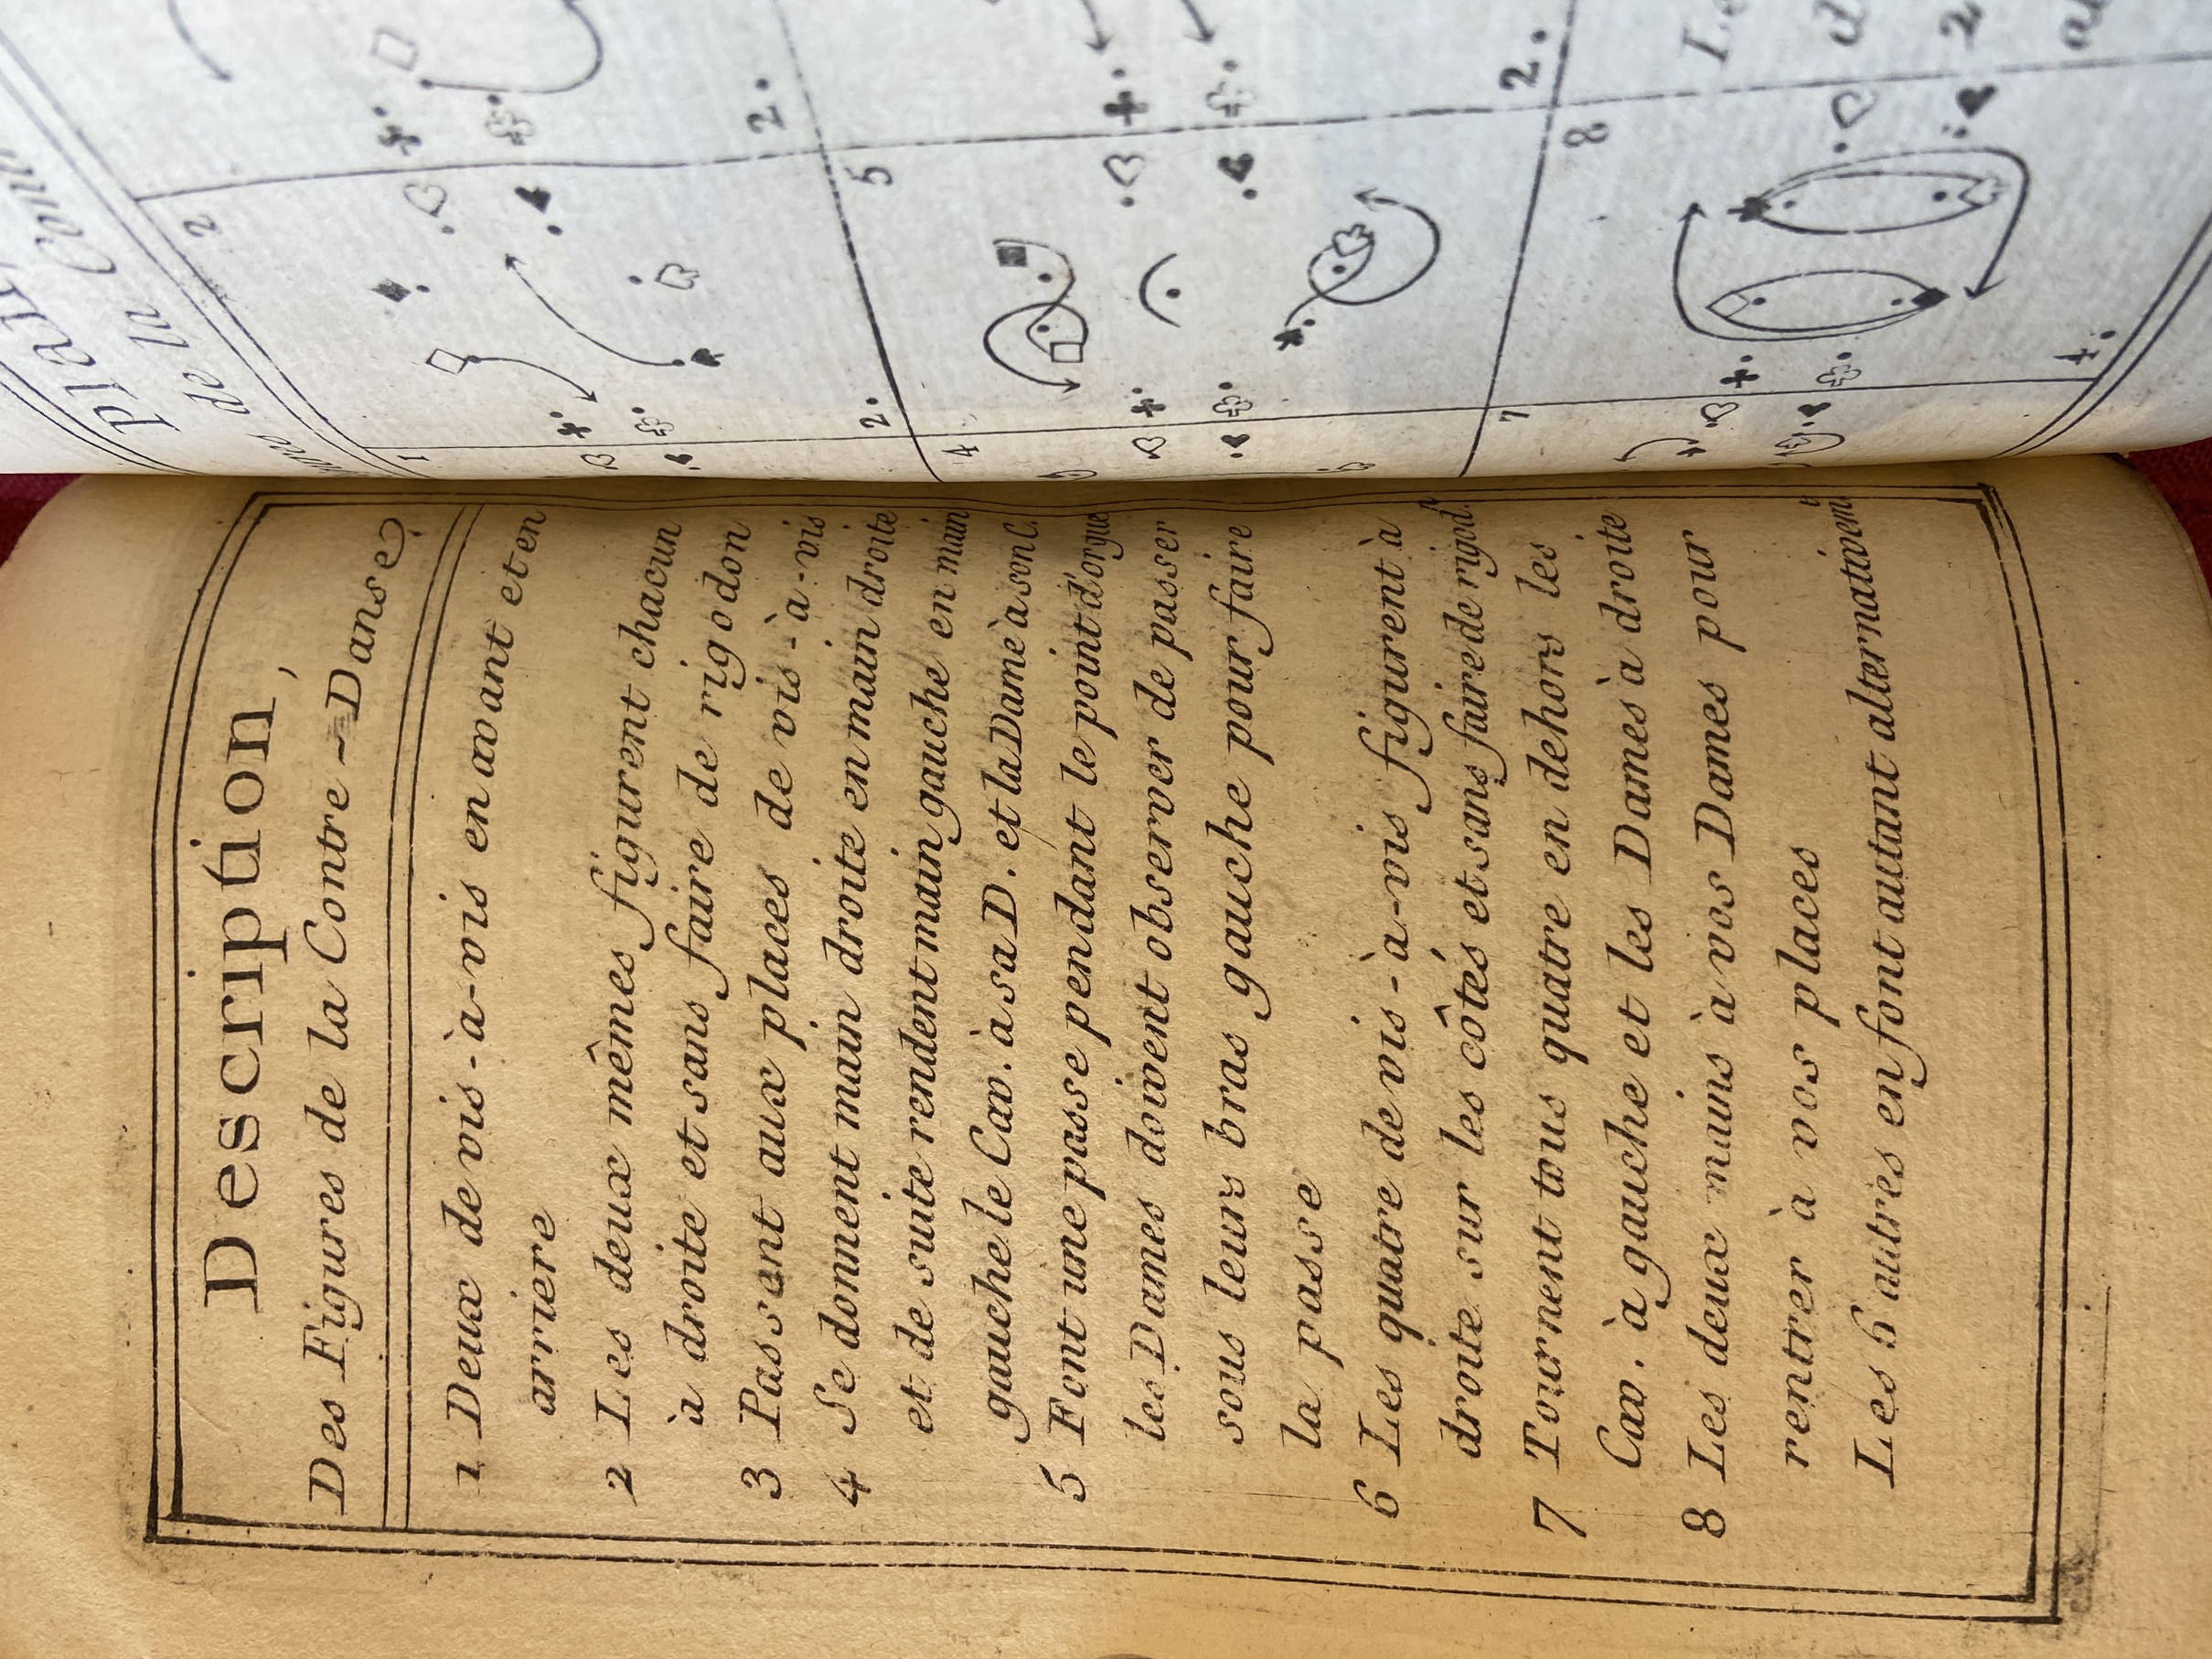 Description,
Des Figures de la Contre-Danse
1 Deux de vis-à-vis en avant et en
arriere
2 Les deux mêmes figurent chacun
à droite et sans faire de rigodon
3 Passent aux places de vis-à-vis
4 Se donnent main droite en main droite
et de suite rendent main gauche en main
gauche le Cav. à sa D. et la Dame à son C.
5 Font une passe pendant le point d'orgue
les Dames doivent observer de passer
sous leurs bras gauche pour faire
la passe
6 Les quatre de vis-à-vis figurent à
droite sur les côtés et sans faire de rigod.n
7 Tournent tous quatre en dehors les
Cav. à gauche et les Dames à droite
8 Les deux mains à vos Dames pour
rentrer à vos places
Les 6 autres en font autant alternativem.t
de la
1
2
2.
2.
4
5
2.
7
8
4.
2